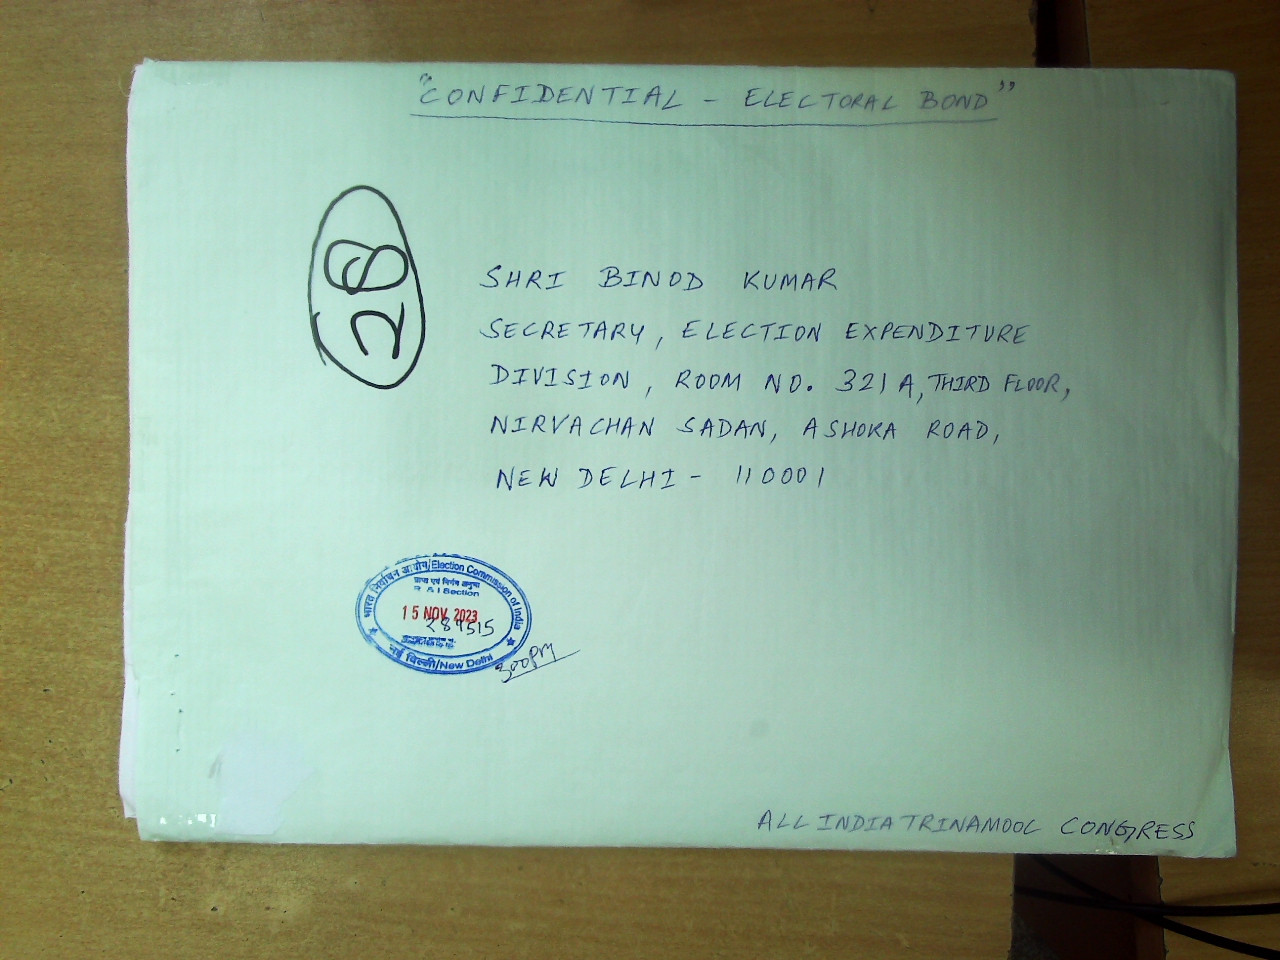 "CONFIDENTIAL - ELECTORAL BOND"
28
SHRI BINOD KUMAR
SECRETARY, ELECTION EXPENDITURE
DIVISION, ROOM NO. 321A, THIRD FLOOR,
NIRVACHAN SADAN, ASHOKA ROAD,
NEW DELHI - 110001
भारत निर्वाचन आयोग/Election Commission of India
प्राप्त एवं निर्गम अनुभाग
R & I Section
15 NOV 2023
289515
नई दिल्ली/New Delhi
300PM
ALL INDIA TRINAMOOL CONGRESS